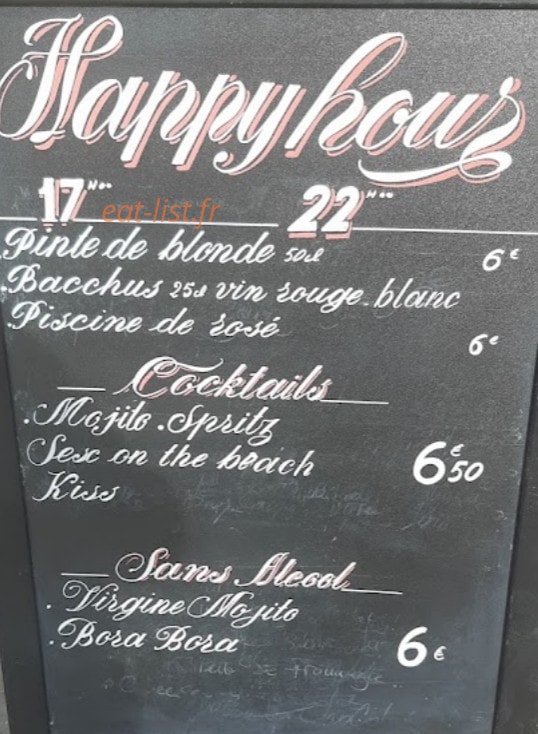 Happy hour
17 H00 22 H00
eat-list.fr
Pinte de blonde 50cl 6€
.Bacchus 25cl vin rouge.blanc
.Piscine de rosé 6€
Cocktails
.Mojito .Spritz
.Sex on the beach 6€50
Kiss
Sans Alcool
. Virgine Mojito
. Bora Bora 6€